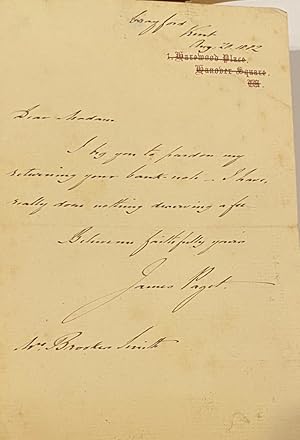 Crayford
Kent
Aug. 20. 1882
1, Harewood Place,
Hanover Square.
W.
Dear Madam
I beg you to pardon my
returning your bank-note – I have
really done nothing deserving a fee
Believe me faithfully yours
James Paget.
Mrs Brookes Smith